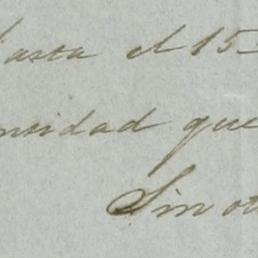 hasta el 15
nsidad que
Sin ot